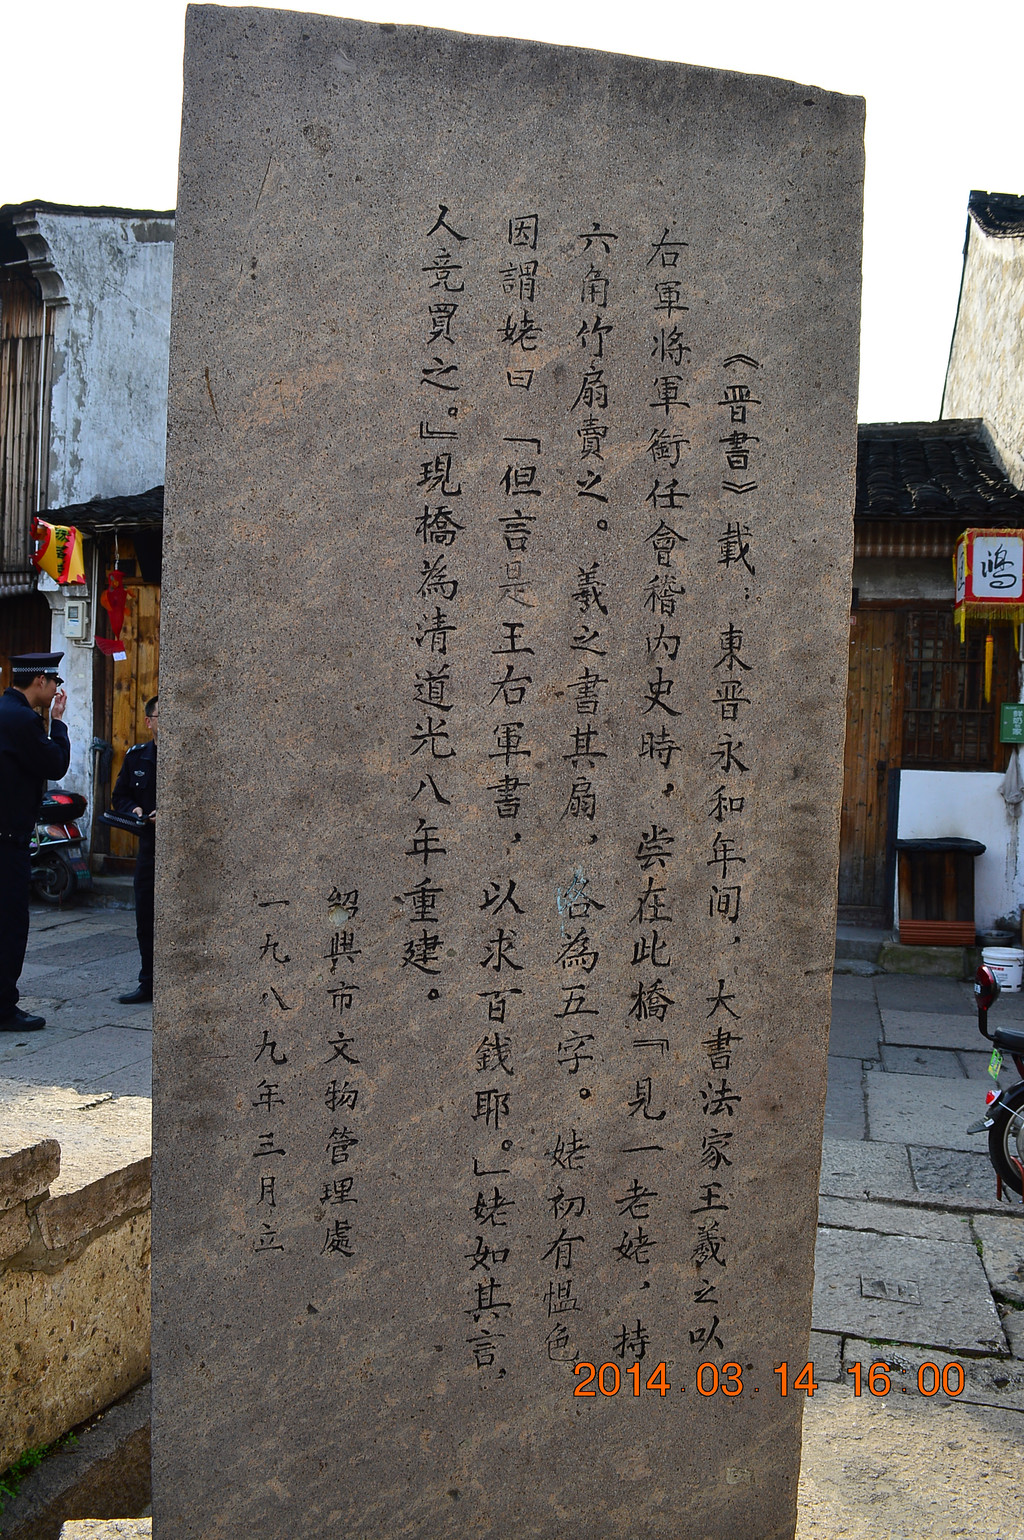 《晋書》載：東晋永和年间，大書法家王羲之以
右軍將軍銜任會稽内史時，尝在此橋『見一老姥，持
六角竹扇賣之。羲之書其扇，各為五字。姥初有愠色
因謂姥曰「但言是王右軍書，以求百錢耶。」姥如其言，
人竞買之。』現橋為清道光八年重建。
紹興市文物管理處
一九八九年三月立
鸿
2014.03.14 16:00